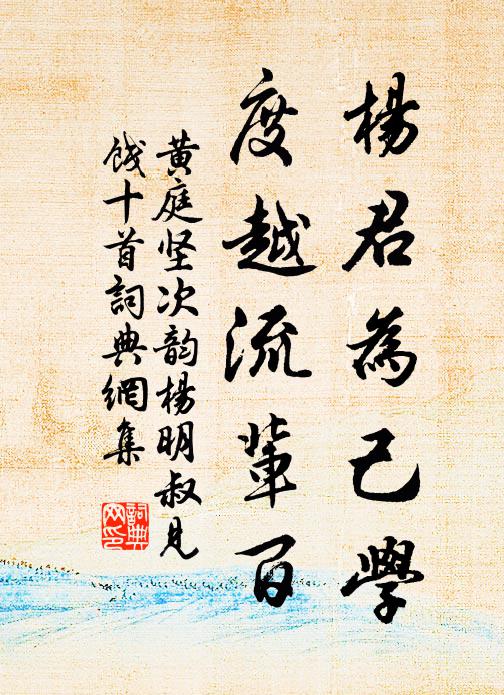 楊君為己學
度越流輩百
黄庭坚次韵楊明叔見
餞十首詞典網集
詞典
网印